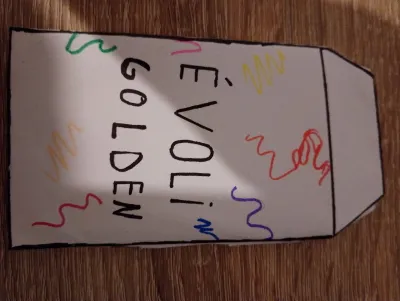 ÉVOLi
GOLDEN